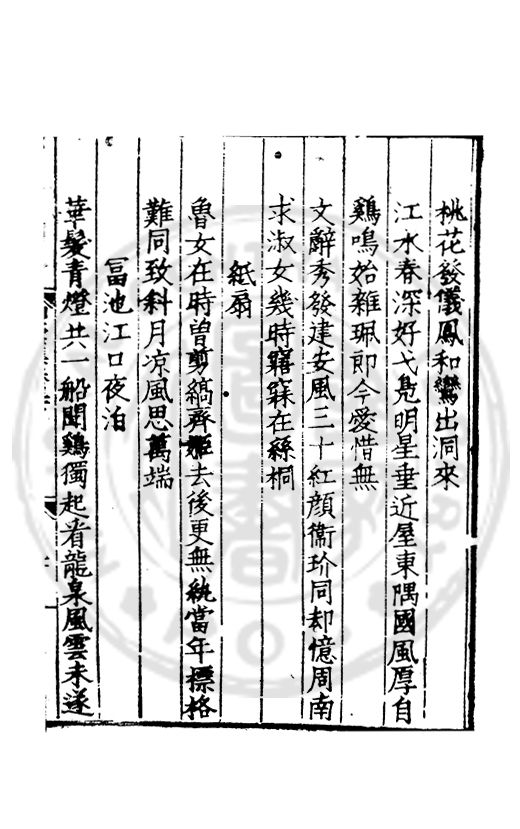 桃花發儀鳳和鸞出洞來
江水春深好弋鳧明星垂近屋東隅國風厚自
鷄鳴始雜珮即今愛惜無
文辭秀發建安風三十紅顔衞玠同却憶周南
求淑女幾時寤寐在絲桐
紙扇
魯女在時曽剪縞齊姬去後更無紈當年標格
難同致斜月凉風思萬端
冨池江口夜泊
華髮青燈共一船聞鷄獨起看龍泉風雲未遂